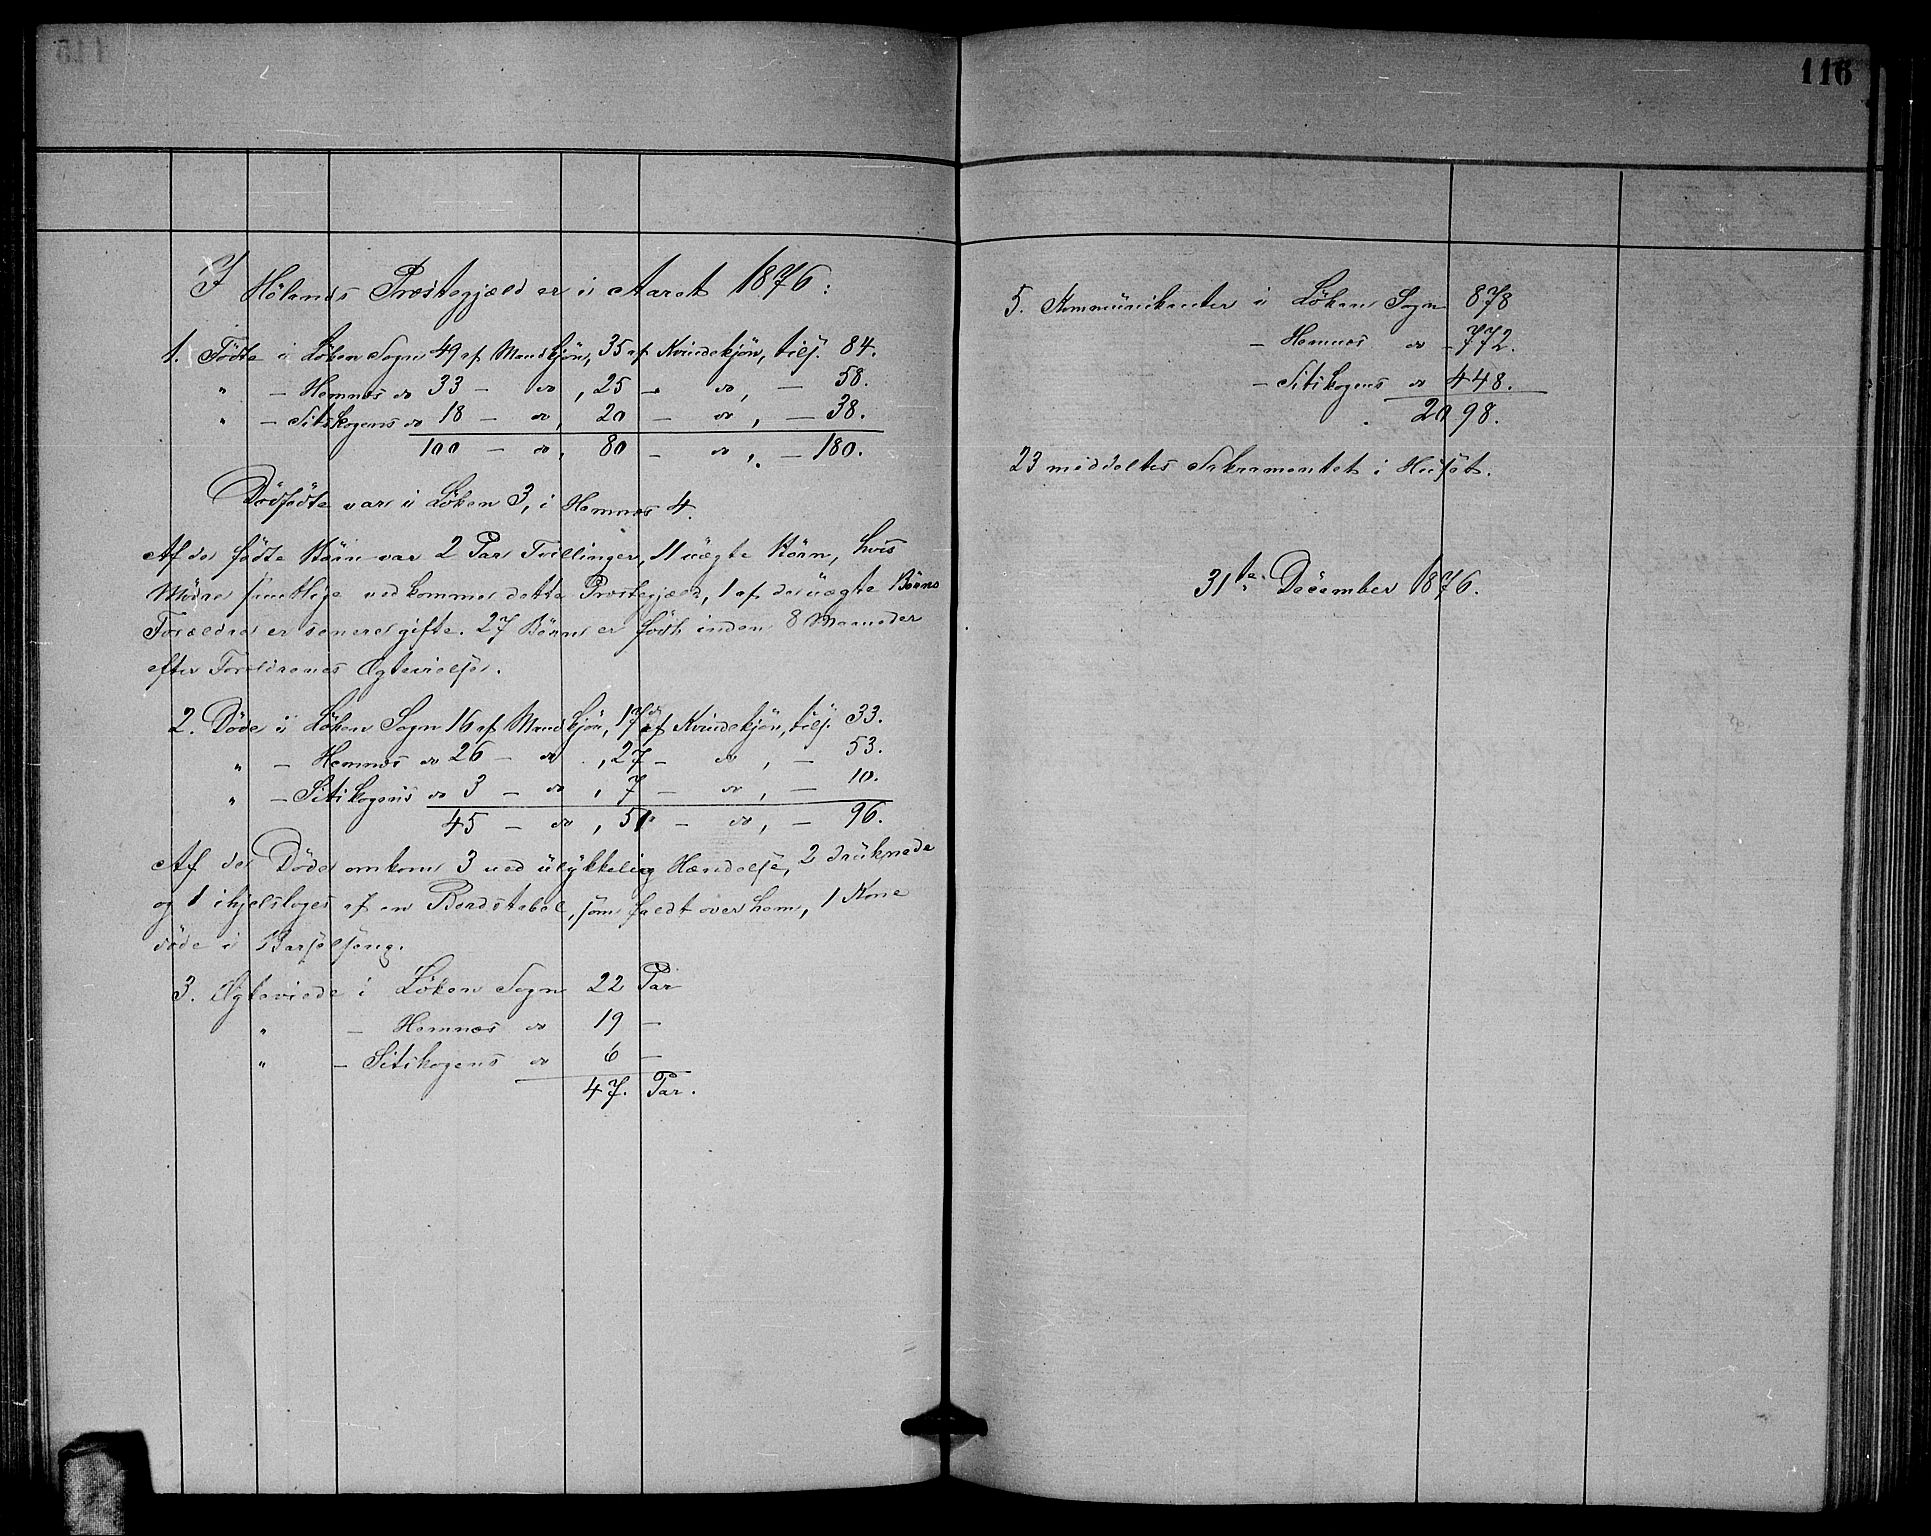 116
I Hölands Præstegjæld er i Aaret 1876:
1. Födte i Löken Sogn 49 af Mandkjön, 35 af Kvindekjön, tils. 84.
" — Hemnæs do 33 — do, 25 — do, — 58.
" — Setskogens do 18 — do, 20 — do, — 38.
100 — do, 80 — do, — 180.
Dödfödte var i Löken 3, i Hemnæs 4.
Af de födte Börn var 2 Par Tvillinger, 11 uægte Börn, hvis
Mödre samtlige vedkommer dette Præstegjæld, 1 af de uægte Börns
Forældre er senere gifte. 27 Börn er födt inden 8 Maaneder
efter Forældrenes Ægtevielse.
2. Döde i Löken Sogn 16 af Mandkjön, 17 af Kvindekjön, tils. 33.
" — Hemnæs do 26 — do, 27 — do, — 53.
" — Setskogens do 3 — do, 7 — do, — 10.
45 — do, 51 — do, — 96.
Af de Döde omkom 3 ved ulykkelig Hændelse, 2 druknede
og 1 ihjelsloges af en Bordstabel, som faldt over ham, 1 Kone
döde i Barselseng.
3. Ægteviede i Löken Sogn 22 Par
" — Hemnæs do 19 —
" — Setskogens do 6 —
47. Par.
5. Kommunikanter i Löken Sogn 878
— Hemnæs do — 772.
— Setskogens do 448.
2098.
23 meddeltes Sakramentet i Huset.
31te December 1876.